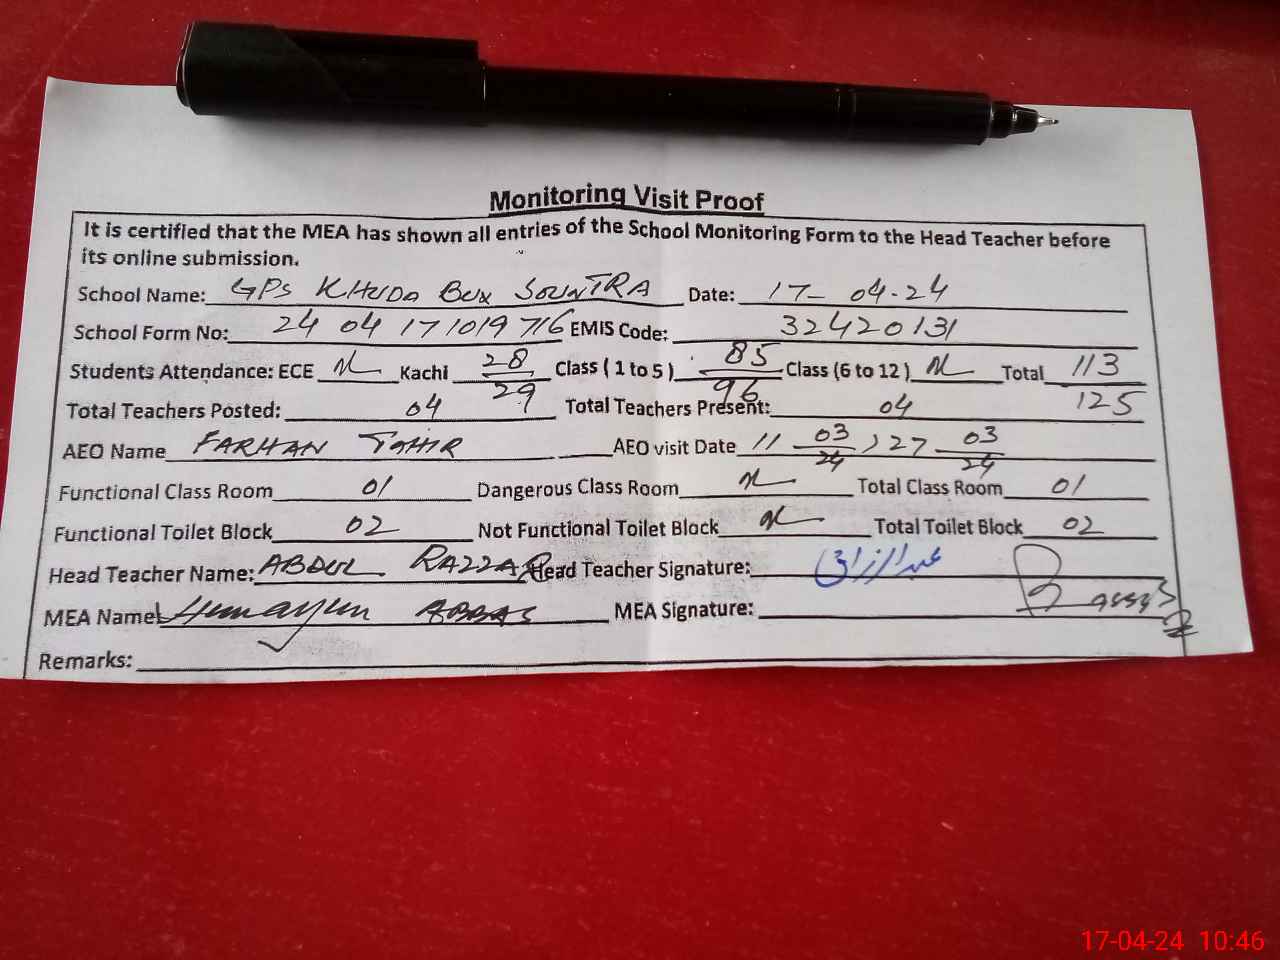 Monitoring Visit Proof
It is certified that the MEA has shown all entries of the School Monitoring Form to the Head Teacher before
its online submission.
School Name: GPS KHUDA BUX SOUNTRA Date: 17-04-24
School Form No: 24 04 171019716 EMIS Code: 32420131
Students Attendance: ECE Kachi 28/29 Class ( 1 to 5 ) 85/96 Class (6 to 12 ) Total 113/125
Total Teachers Posted: 04 Total Teachers Present: 04
AEO Name FARHAN TAHIR AEO visit Date 11 03/24 , 27 03/24
Functional Class Room 01 Dangerous Class Room Total Class Room 01
Functional Toilet Block 02 Not Functional Toilet Block Total Toilet Block 02
Head Teacher Name: ABDUL RAZZAQ Head Teacher Signature: عبدالرزاق
MEA Name Humayun ABBAS MEA Signature:
Remarks:
17-04-24 10:46